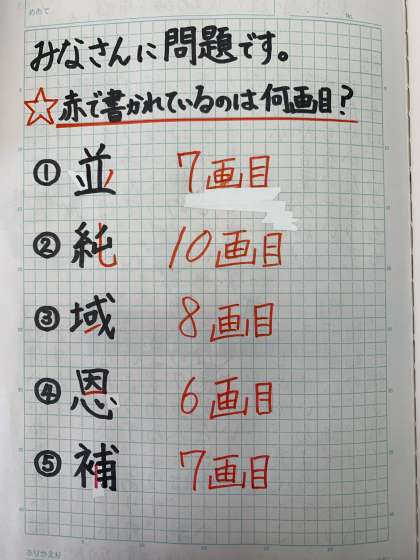 めあて
No.
みなさんに問題です。
☆赤で書かれているのは何画目?
① 並 7画目
② 純 10画目
③ 域 8画目
④ 恩 6画目
⑤ 補 7画目
ふりかえり